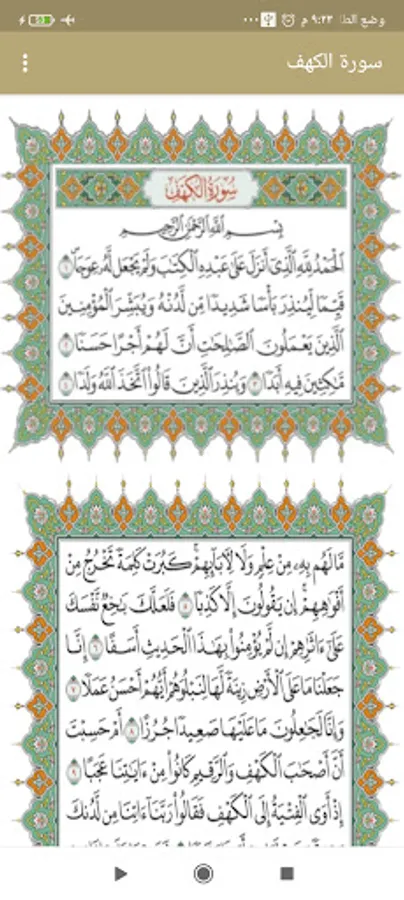 وضع الط ٩:٢٣ م
سورة الكهف
سُورَةُ الكَهْفِ
بِسْمِ اللَّهِ الرَّحْمَٰنِ الرَّحِيمِ
الْحَمْدُ لِلَّهِ الَّذِي أَنزَلَ عَلَىٰ عَبْدِهِ الْكِتَٰبَ وَلَمْ يَجْعَل لَّهُۥ عِوَجًا ١
قَيِّمًا لِّيُنذِرَ بَأْسًا شَدِيدًا مِّن لَّدُنْهُ وَيُبَشِّرَ الْمُؤْمِنِينَ
الَّذِينَ يَعْمَلُونَ الصَّٰلِحَٰتِ أَنَّ لَهُمْ أَجْرًا حَسَنًا ٢
مَّٰكِثِينَ فِيهِ أَبَدًا ٣ وَيُنذِرَ الَّذِينَ قَالُوا۟ اتَّخَذَ اللَّهُ وَلَدًا ٤
مَّا لَهُم بِهِۦ مِنْ عِلْمٍ وَلَا لِءَابَآئِهِمْ ۚ كَبُرَتْ كَلِمَةً تَخْرُجُ مِنْ
أَفْوَٰهِهِمْ ۚ إِن يَقُولُونَ إِلَّا كَذِبًا ٥ فَلَعَلَّكَ بَٰخِعٌ نَّفْسَكَ
عَلَىٰٓ ءَاثَٰرِهِمْ إِن لَّمْ يُؤْمِنُوا۟ بِهَٰذَا الْحَدِيثِ أَسَفًا ٦ إِنَّا
جَعَلْنَا مَا عَلَى الْأَرْضِ زِينَةً لَّهَا لِنَبْلُوَهُمْ أَيُّهُمْ أَحْسَنُ عَمَلًا ٧
وَإِنَّا لَجَٰعِلُونَ مَا عَلَيْهَا صَعِيدًا جُرُزًا ٨ أَمْ حَسِبْتَ
أَنَّ أَصْحَٰبَ الْكَهْفِ وَالرَّقِيمِ كَانُوا۟ مِنْ ءَايَٰتِنَا عَجَبًا ٩
إِذْ أَوَى الْفِتْيَةُ إِلَى الْكَهْفِ فَقَالُوا۟ رَبَّنَآ ءَاتِنَا مِن لَّدُنكَ